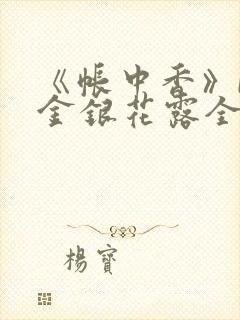 《帳中香》
金銀花露全
楊寶